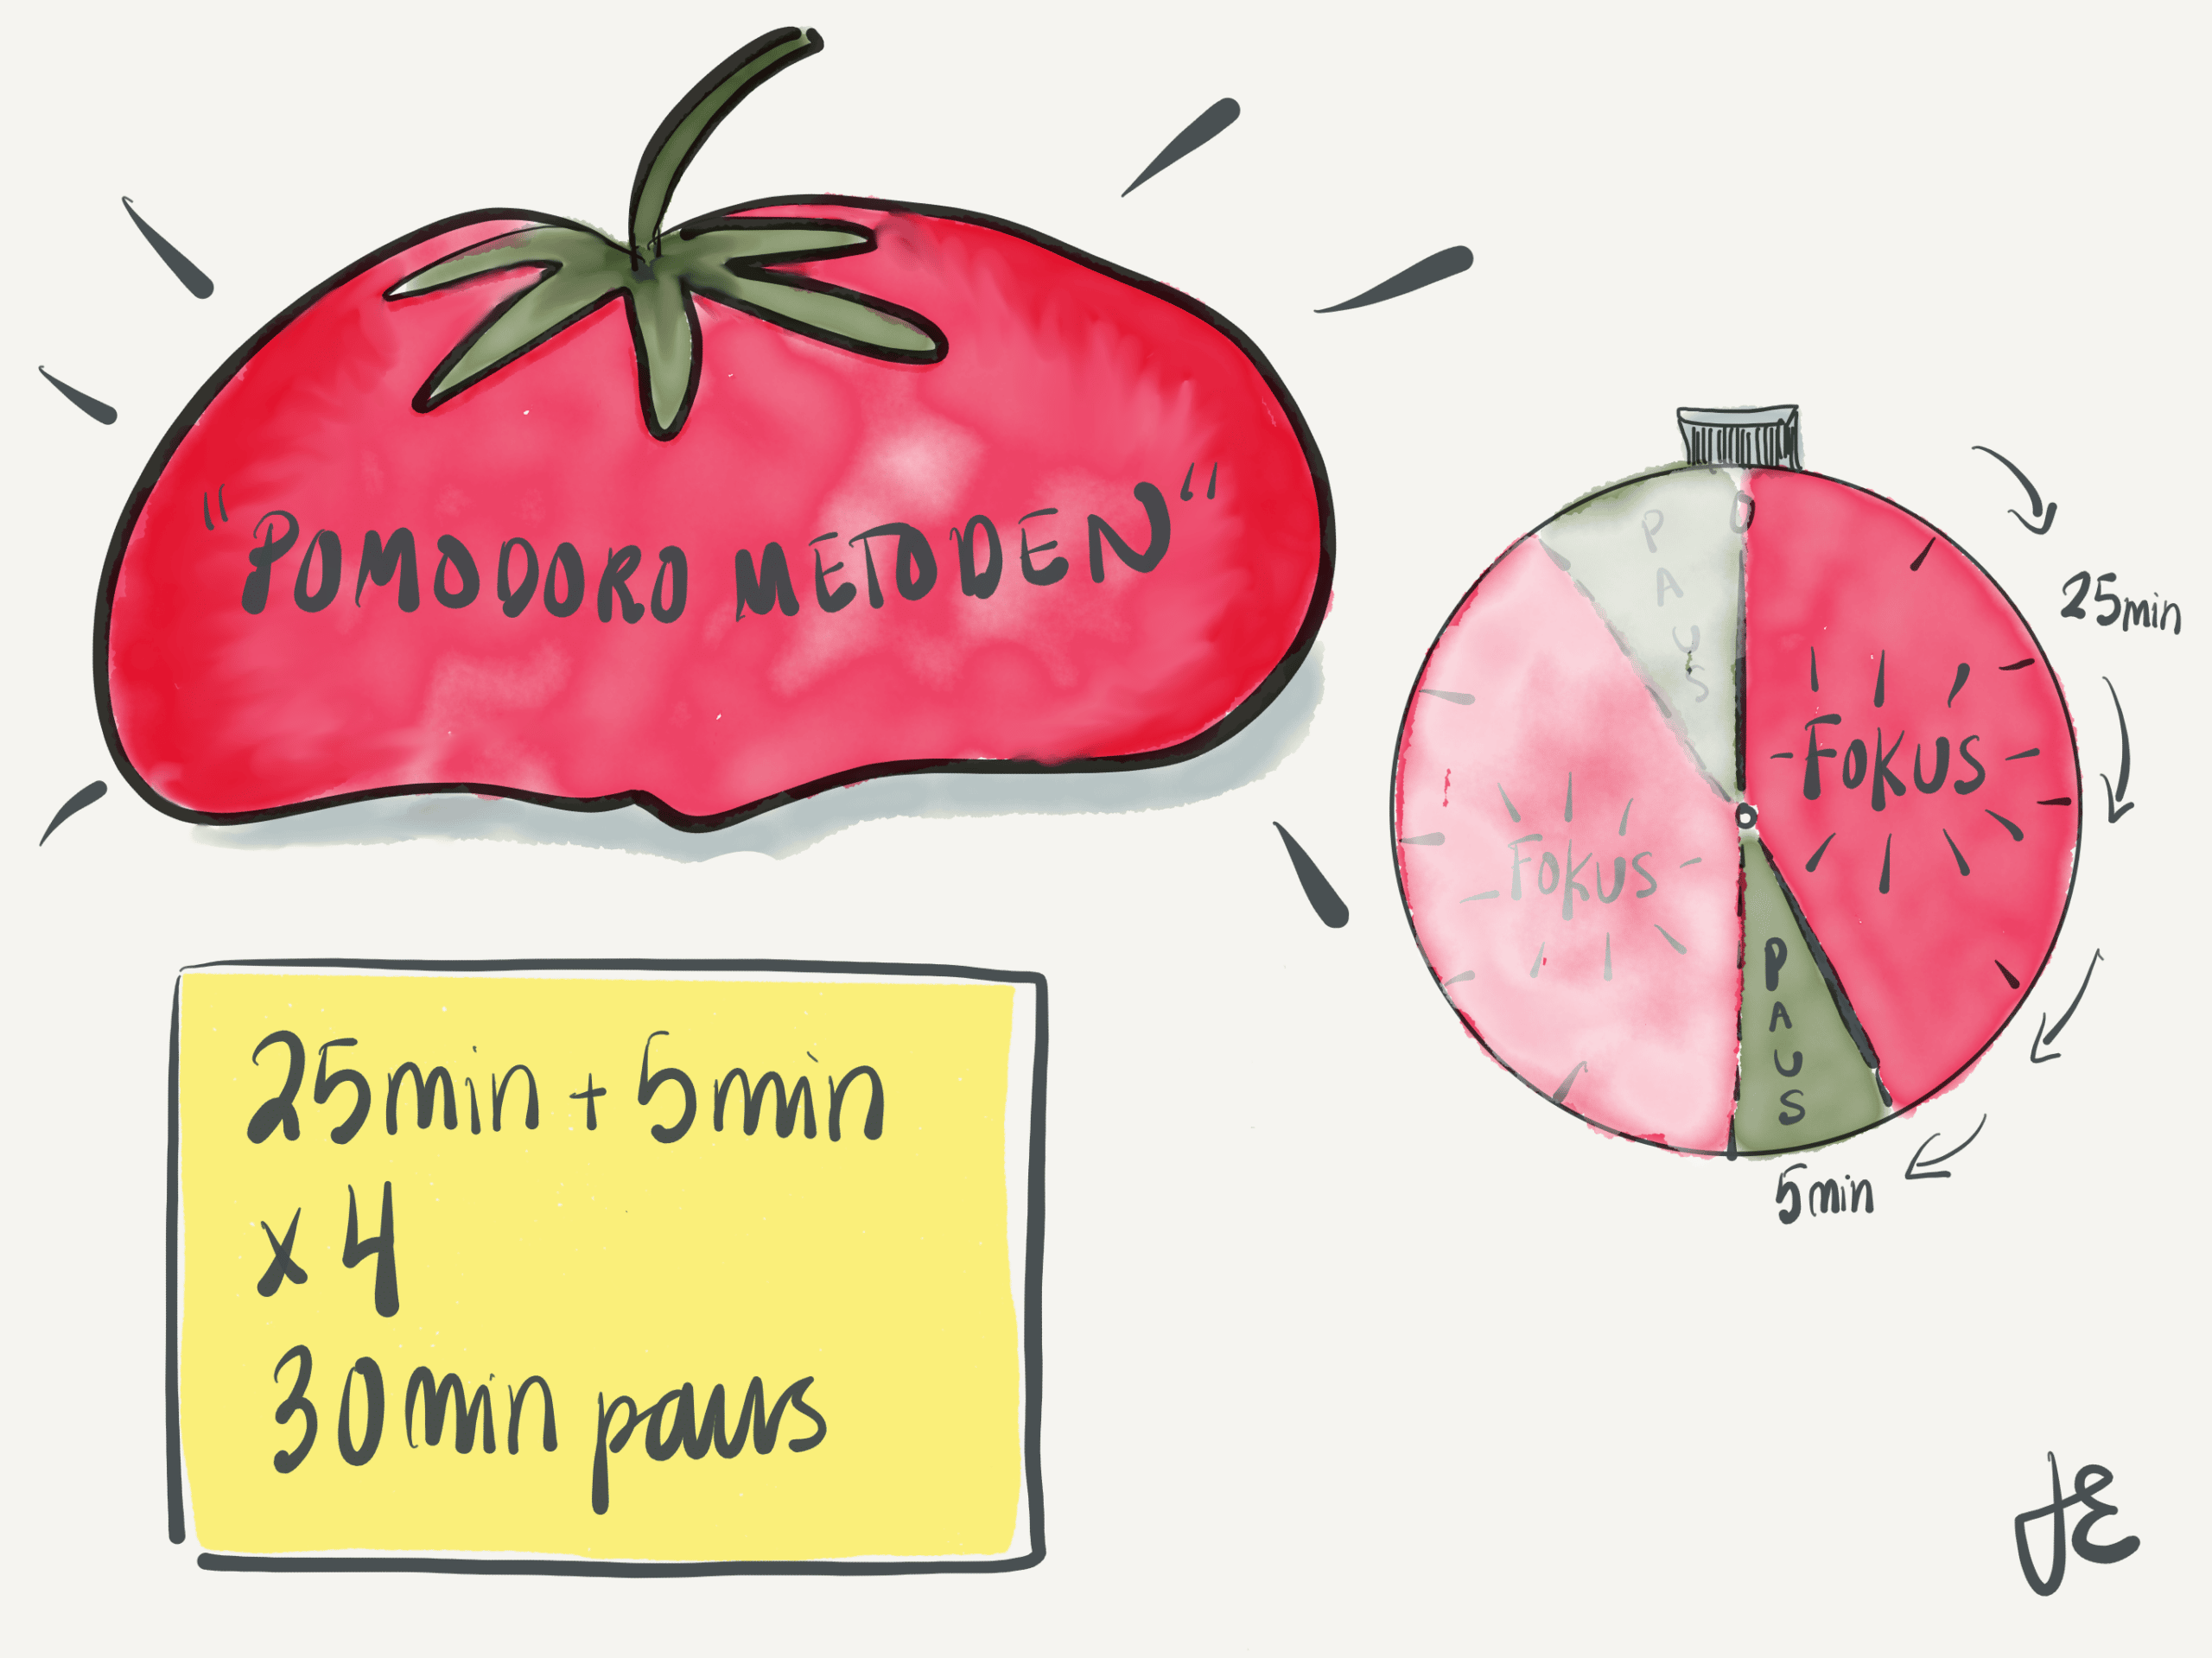 "POMODORO METODEN"
PAUS
0
25min
FOKUS
FOKUS
PAUS
5min
25min + 5min
x 4
30min paus
JE